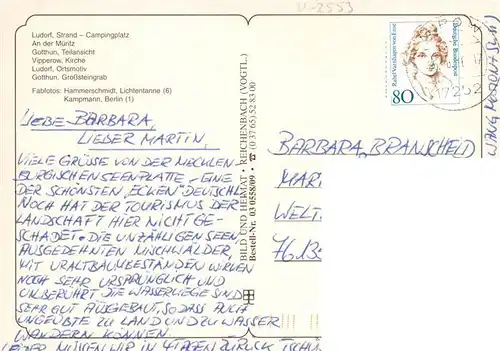 U-2553
Ludorf, Strand – Campingplatz
An der Müritz
Gotthun, Teilansicht
Vipperow, Kirche
Ludorf, Ortsmotiv
Gotthun, Großsteingrab
Fabfotos: Hammerschmidt, Lichtentanne (6)
Kampmann, Berlin (1)
LIEBE BARBARA,
LIEBER MARTIN,
VIELE GRÜSSE VON DER MECKLEN-
BURGISCHEN SEENPLATTE - EINE
DER SCHÖNSTEN „ECKEN“ DEUTSCHL
NOCH HAT DER TOURISMUS DER
LANDSCHAFT HIER NICHT GE-
SCHADET. DIE UNZÄHLIGEN SEEN,
AUSGEDEHNTEN MISCHWÄLDER,
MIT URALTBAUMBESTÄNDEN WIRKEN
NOCH SEHR URSPRÜNGLICH UND
UNBERÜHRT DIE WASSERLIEGE SIND
SEHR GUT AUSGEBAUT, SODASS AUCH
UNGEÜBTE ZU LAND UND ZU WASSER
WANDERN KÖNNEN.
LEIDER MÜSSEN WIR IN 4 TAGEN ZURÜCK TSCHÜ
BILD UND HEIMAT • REICHENBACH (VOGTL.)
Bestell-Nr. 03 0558/09 • ☎ (0 37 65) 52 83-00
Rahel Varnhagen von Ense
Deutsche Bundespost
80
17252
BARBARA BRANSCHEID
MAR
WELT